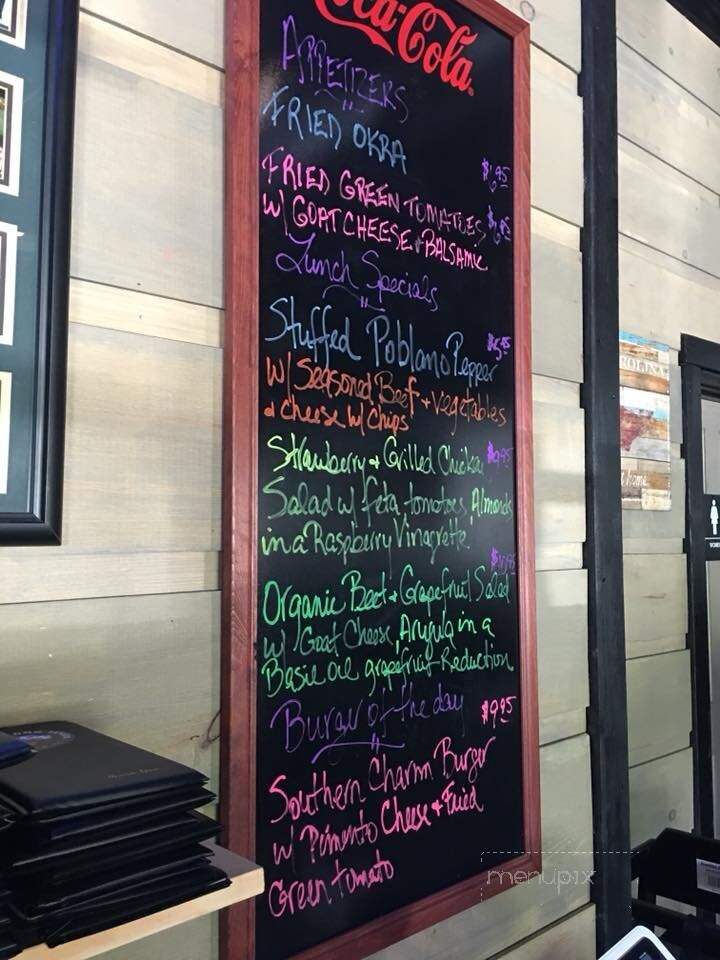 Coca-Cola
APPETIZERS
FRIED OKRA
FRIED GREEN TOMATOES
W/ GOAT CHEESE + BALSAMIC
Lunch Specials
Stuffed Poblano Pepper
w/ Seasoned Beef + Vegetables
+ cheese w/ Chips
Strawberry + Grilled Chicken $9.95
Salad w/ feta, tomatoes, Almonds
in a Raspberry Vinagrette
Organic Beet + Grapefruit Salad
w/ Goat Cheese, Arugula in a
Basil Oil grapefruit Reduction
Burger of the day $9.95
Southern Charm Burger
w/ Pimento Cheese + Fried
Green tomato
menupix